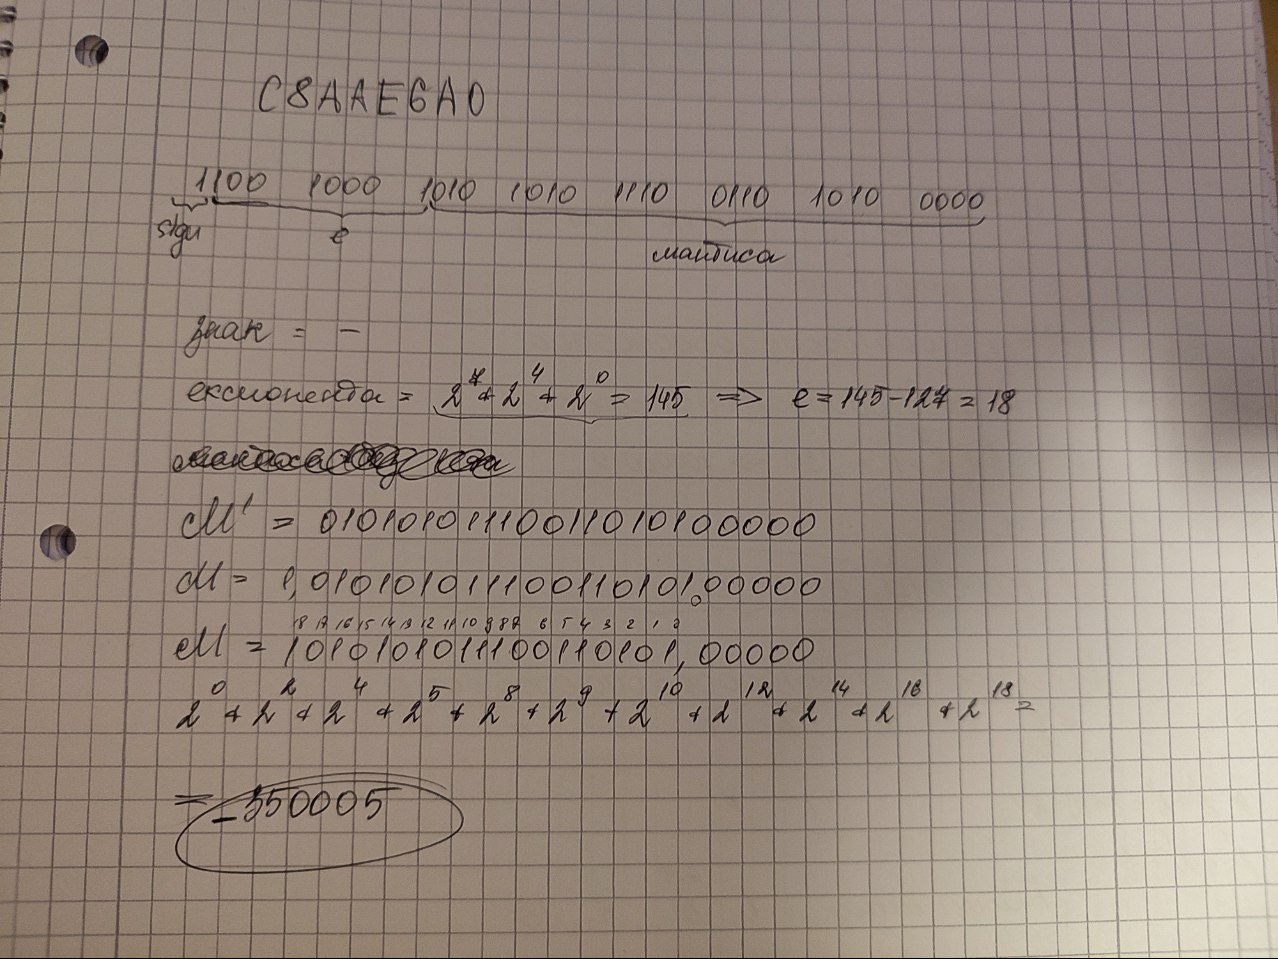 C8AAE6A0
1100 1000 1010 1010 1110 0110 1010 0000
sign e мантиса
знак = −
експонента = 2^7 + 2^4 + 2^0 = 145 => e = 145 − 127 = 18
M' = 01010101110011010100000
M = 1,010101011100110101,00000
18 17 16 15 14 13 12 11 10 9 8 7 6 5 4 3 2 1 0
M = 1010101011100110101,00000
2^0 + 2^2 + 2^4 + 2^5 + 2^8 + 2^9 + 2^10 + 2^12 + 2^14 + 2^16 + 2^18 =
= −350005